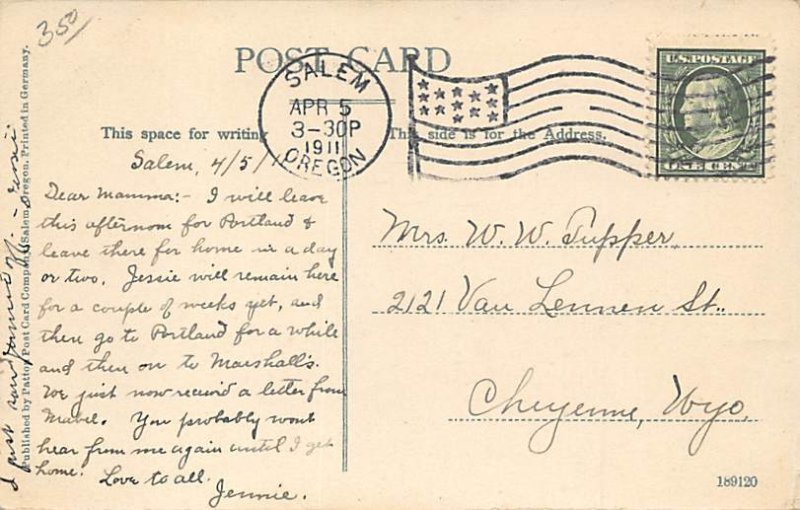 350
POST CARD
SALEM
APR 5
3-30P
1911
OREGON
U.S. POSTAGE
ONE CENT
This space for writing
This side is for the Address.
Salem, 4/5/11
Dear Mamma:- I will leave
this afternoon for Portland &
leave there for home in a day
or two. Jessie will remain here
for a couple of weeks yet, and
then go to Portland for a while
and then on to Marshall's.
We just now received a letter from
Mabel. You probably wont
hear from me again until I get
home. Love to all.
Jennie.
Mrs. W. W. Tupper,
2121 Van Lennen St.,
Cheyenne, Wyo.
189120
Published by Patton Post Card Company, Salem, Oregon. Printed in Germany.
I just saw
Jessie